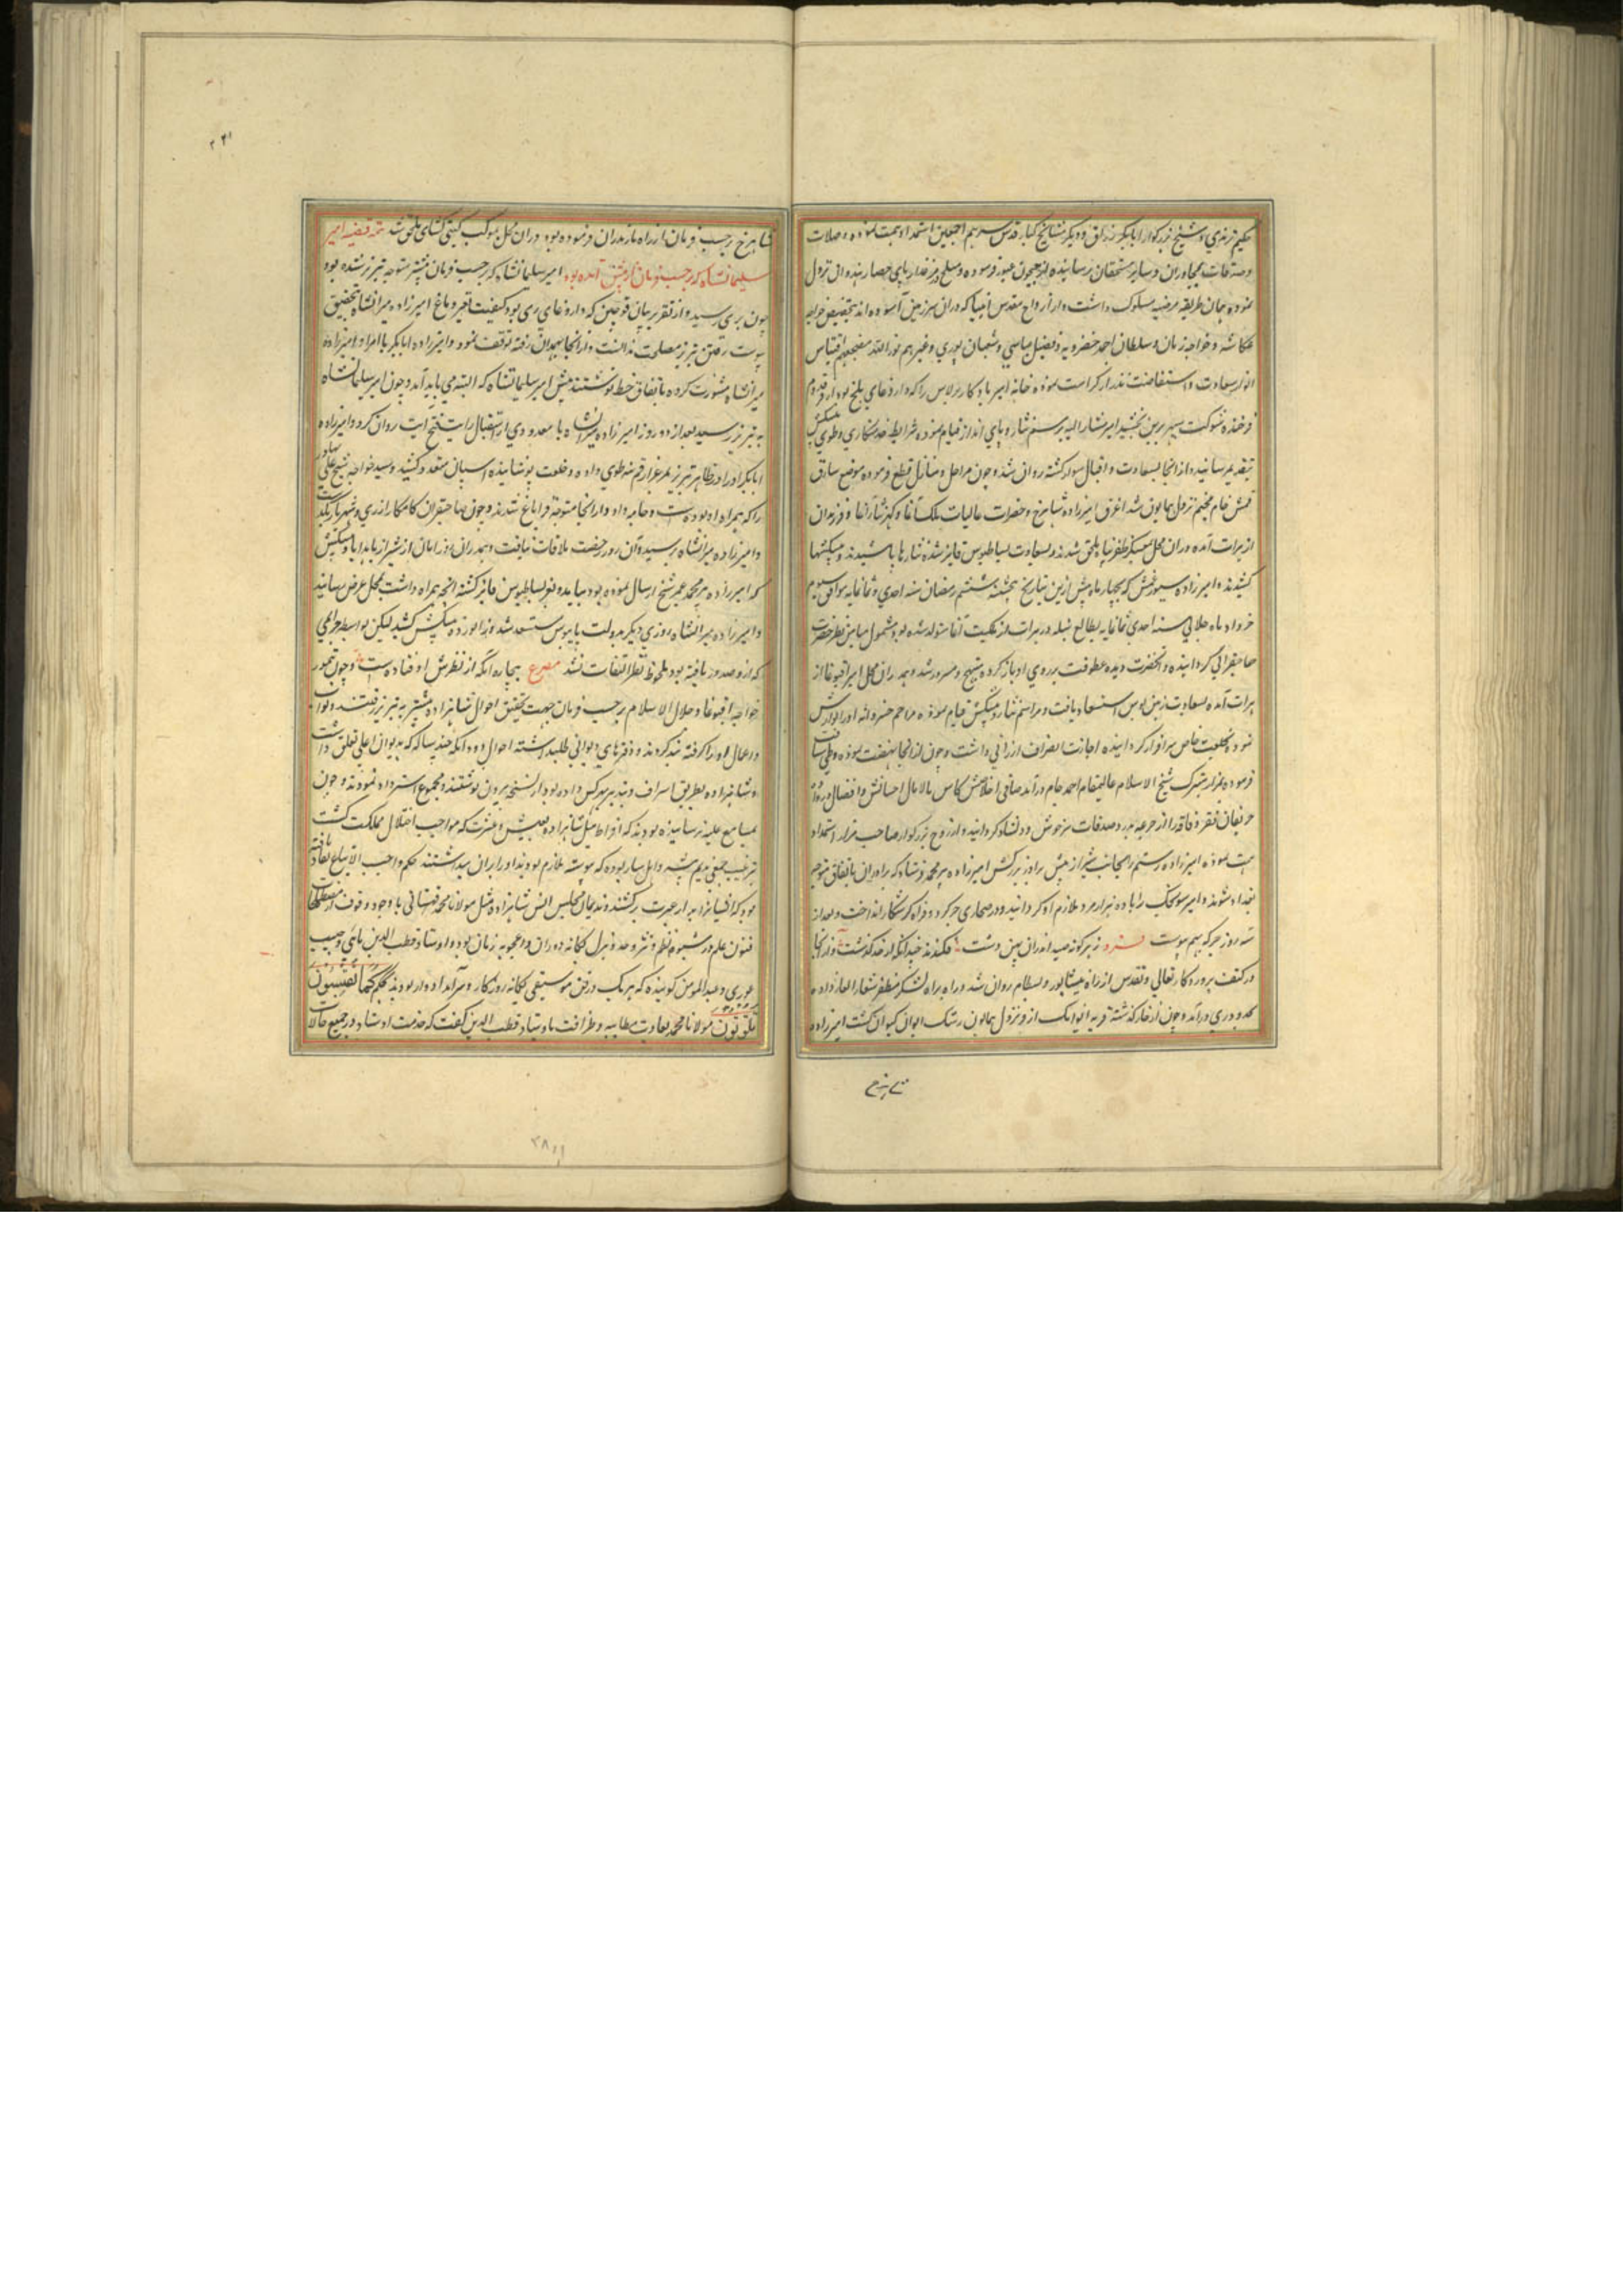 حکیم ترمذی و شیخ بزرگوار ابابکر وراق و دیگر مشایخ کبار قدس سرهم اجمعین استمداد همت نموده و صلات
و صدقات بمجاوران و سایر مستحقان رسانیده از جیحون عبور فرموده و سلخ در پای حصار هندوان نزول
نموده بهمان طریقه مرضیه مسلوک داشت و از ارواح مقدس انبیا که دران سرزمین آسوده اند بتخصیص خواجه
عکاشه و خواجه زمان و سلطان احمد خضرویه و فضیل عیاض و سفیان ثوری و غیرهم نور الله مضجعهم اقتباس
انوار سعادت و استفاضت نموده خانه امیر یادگار برلاس را که داروغای بلخ بود از قدوم
فرخنده شوکت سپهر برین بخشید امیر مشار الیه برسم نثار و پای انداز قیام نموده شرایط خدمتکاری و طوی و پیشکش
بتقدیم رسانید و از انجا بسعادت و اقبال سوار گشته روان شد و چون مراحل و منازل قطع فرموده موضع ساریق
قمش جام مخیم نزول همایون شد اغرق امیرزاده شاهرخ و حضرات عالیات ملکت آغا و فرزندان
از هرات آمده دران محل بمعسکر ظفرپناه ملحق شدند و بسعادت بساط بوس فایز شده نثارها پاشیدند و پیشکشها
کشیدند و امیرزاده سیورغتمش که بچهار ماه پیش ازین بتاریخ پنجشنبه ششم رمضان سنه احدی و ثمانمایه موافق سیوم
خرداد ماه جلالی سنه احدی ثمانمایه بطالع سنبله در هرات از ملکت آغا متولد شده بود مشمول میامن نظر حضرت
صاحبقرانی گردانیده و آنحضرت دیده عطوفت بر روی او باز کرده مبتهج و مسرور شد و هم دران محل امیر اقبوغا از
هرات آمده بسعادت زمین بوس استسعاد یافت و مراسم نثار و پیشکش قیام نموده مراحم خسروانه او را نوازش
نمود و بخلعت خاص سرافراز گردانیده اجازت انصراف ارزانی داشت و چون از انجا نهضت نموده
فرموده بمزار متبرک شیخ الاسلام عالیمقام احمد جام درآمد ساقی اخلاصش کاس مالامال احسانش و افضال در داد
حریفان فقر و فاقه را از جرعه مبرد صدقات سرخوش و دلشاد گردانید و از روح بزرگوار صاحب مزار استمداد
همت نموده امیرزاده رستم را بجانب شیراز پیش برادر بزرگش امیرزاده پیر محمد فرستاد که برادران باتفاق متوجه
بغداد شوند و امیر سونجک را با ده هزار مرد ملازم او گردانید و در صحاری جرگه و فراه کر شکار انداخت و بعد از
سه روز جرگه بهم پیوست شعر ز هر گونه صید اندران پهن دشت فکندند چندانکه از حد گذشت و از انجا
در کنف پروردگار تعالی و تقدس از راه نیشابور و بسطام روان شد و راه لشکر مظفر شعار العار داده
بحدود ری درآمد و چون از خوار گذشته قریه ایوانک از فر نزول همایون رشک ایوان کیوان گشت امیرزاده
شاهرخ
۲۴۱
شاهرخ برحسب فرمان از راه مازندران فرموده بود دران محل بموکب گیتی گشای ملحق شد تتمه قضیه امیر
سلیمانشاه که برحسب فرمان از پیش آمده بود امیر سلیمانشاه که برحسب فرمان پیشتر متوجه تبریز شده بود
چون بری رسید و از تقریر بیان قوجین که داروغای ری بود کیفیت تغیر دماغ امیرزاده میرانشاه بتحقیق
پیوست رفتن تبریز مصلحت ندانست و از انجا بهمدان رفته توقف نمود و امیرزاده ابابکر با امرا و امیرزاده
میرانشاه مشورت کرده باتفاق خط نوشتند پیش امیر سلیمانشاه که البته می باید آمد و چون امیر سلیمانشاه
به تبریز رسید بعد از دو روز امیرزاده میرانشاه با معدودی از استقبال رایت فتح آیت روان کرد و امیرزاده
ابابکر او را در ظاهر تبریز بمرغزار قم تبه طوی داده و خلعت پوشانیده اسپان متعدد کشید و سید خواجه شیخ علی بهادر
را که همراه او بوده اسب و جامه داد و از انجا متوجه قراباغ شدند و چون صاحبقران کامکار از ری و شهریار بگذشت
و امیرزاده میرانشاه رسید آن روز رخصت ملاقات نیافت و هم دران روز ایان از شیراز با هدایا و پیشکش
که امیرزاده پیر محمد عمر شیخ ارسال نموده بود بیامد و بعز بساط بوس فایز گشته انچه همراه داشت بمحل عرض رسانید
و امیرزاده میرانشاه روزی دیگر بدولت پایبوس مستسعد شده زانو زده پیشکش کشید لیکن بواسطه جرایمی
که ازو صدور یافته بود ملحوظ نظر التفات نشد مصرع بیچاره آنکه از نظرش اوفتاده است و چون تیمور
خواجه اقبوغا و جلال الاسلام برحسب فرمان جهت تحقیق احوال شاهزاده پیشتر به تبریز رفتند و نواب
و عمال او را گرفته بند کردند و دفترهای دیوانی طلب داشته احوال وجوه آنکه چند ساله که بدیوان اعلی تعلق داشت
و شاهزاده بطریق اسراف و تبذیر بهر کس داده بود از نسخه بیرون نوشتند و مجموع استرداد نمودند و چون
بمسامع علیه رسانیده بودند که افراط میل شاهزاده بعیش و عشرت که موجب اختلال مملکت گشت
بترغیب جمعی ندیم پیشه و اهل ساز بوده که پیوسته ملازم بودند او را بران میداشتند حکم واجب الاتباع نفاذ یافته
بود که ایشان را بدار عبرت برکشند و ندیمان مجلس انس شاهزاده مثل مولانا محمد قهستانی با وجود وقوف از
فنون علم در شیوه نظم و نثر و جد و هزل یگانه دوران و اعجوبه زمان بود و استاد قطب الدین نائی و حبیب
عودی و عبدالمومن گوینده که هر یک در فن موسیقی یگانه روزگار و سرآمد ادوار بودند بحکم کما تعیشون
تموتون مولانا محمد بعادت مطایبه و ظرافت با استاد قطب الدین گفت که خدمت استاد در جمیع حالات